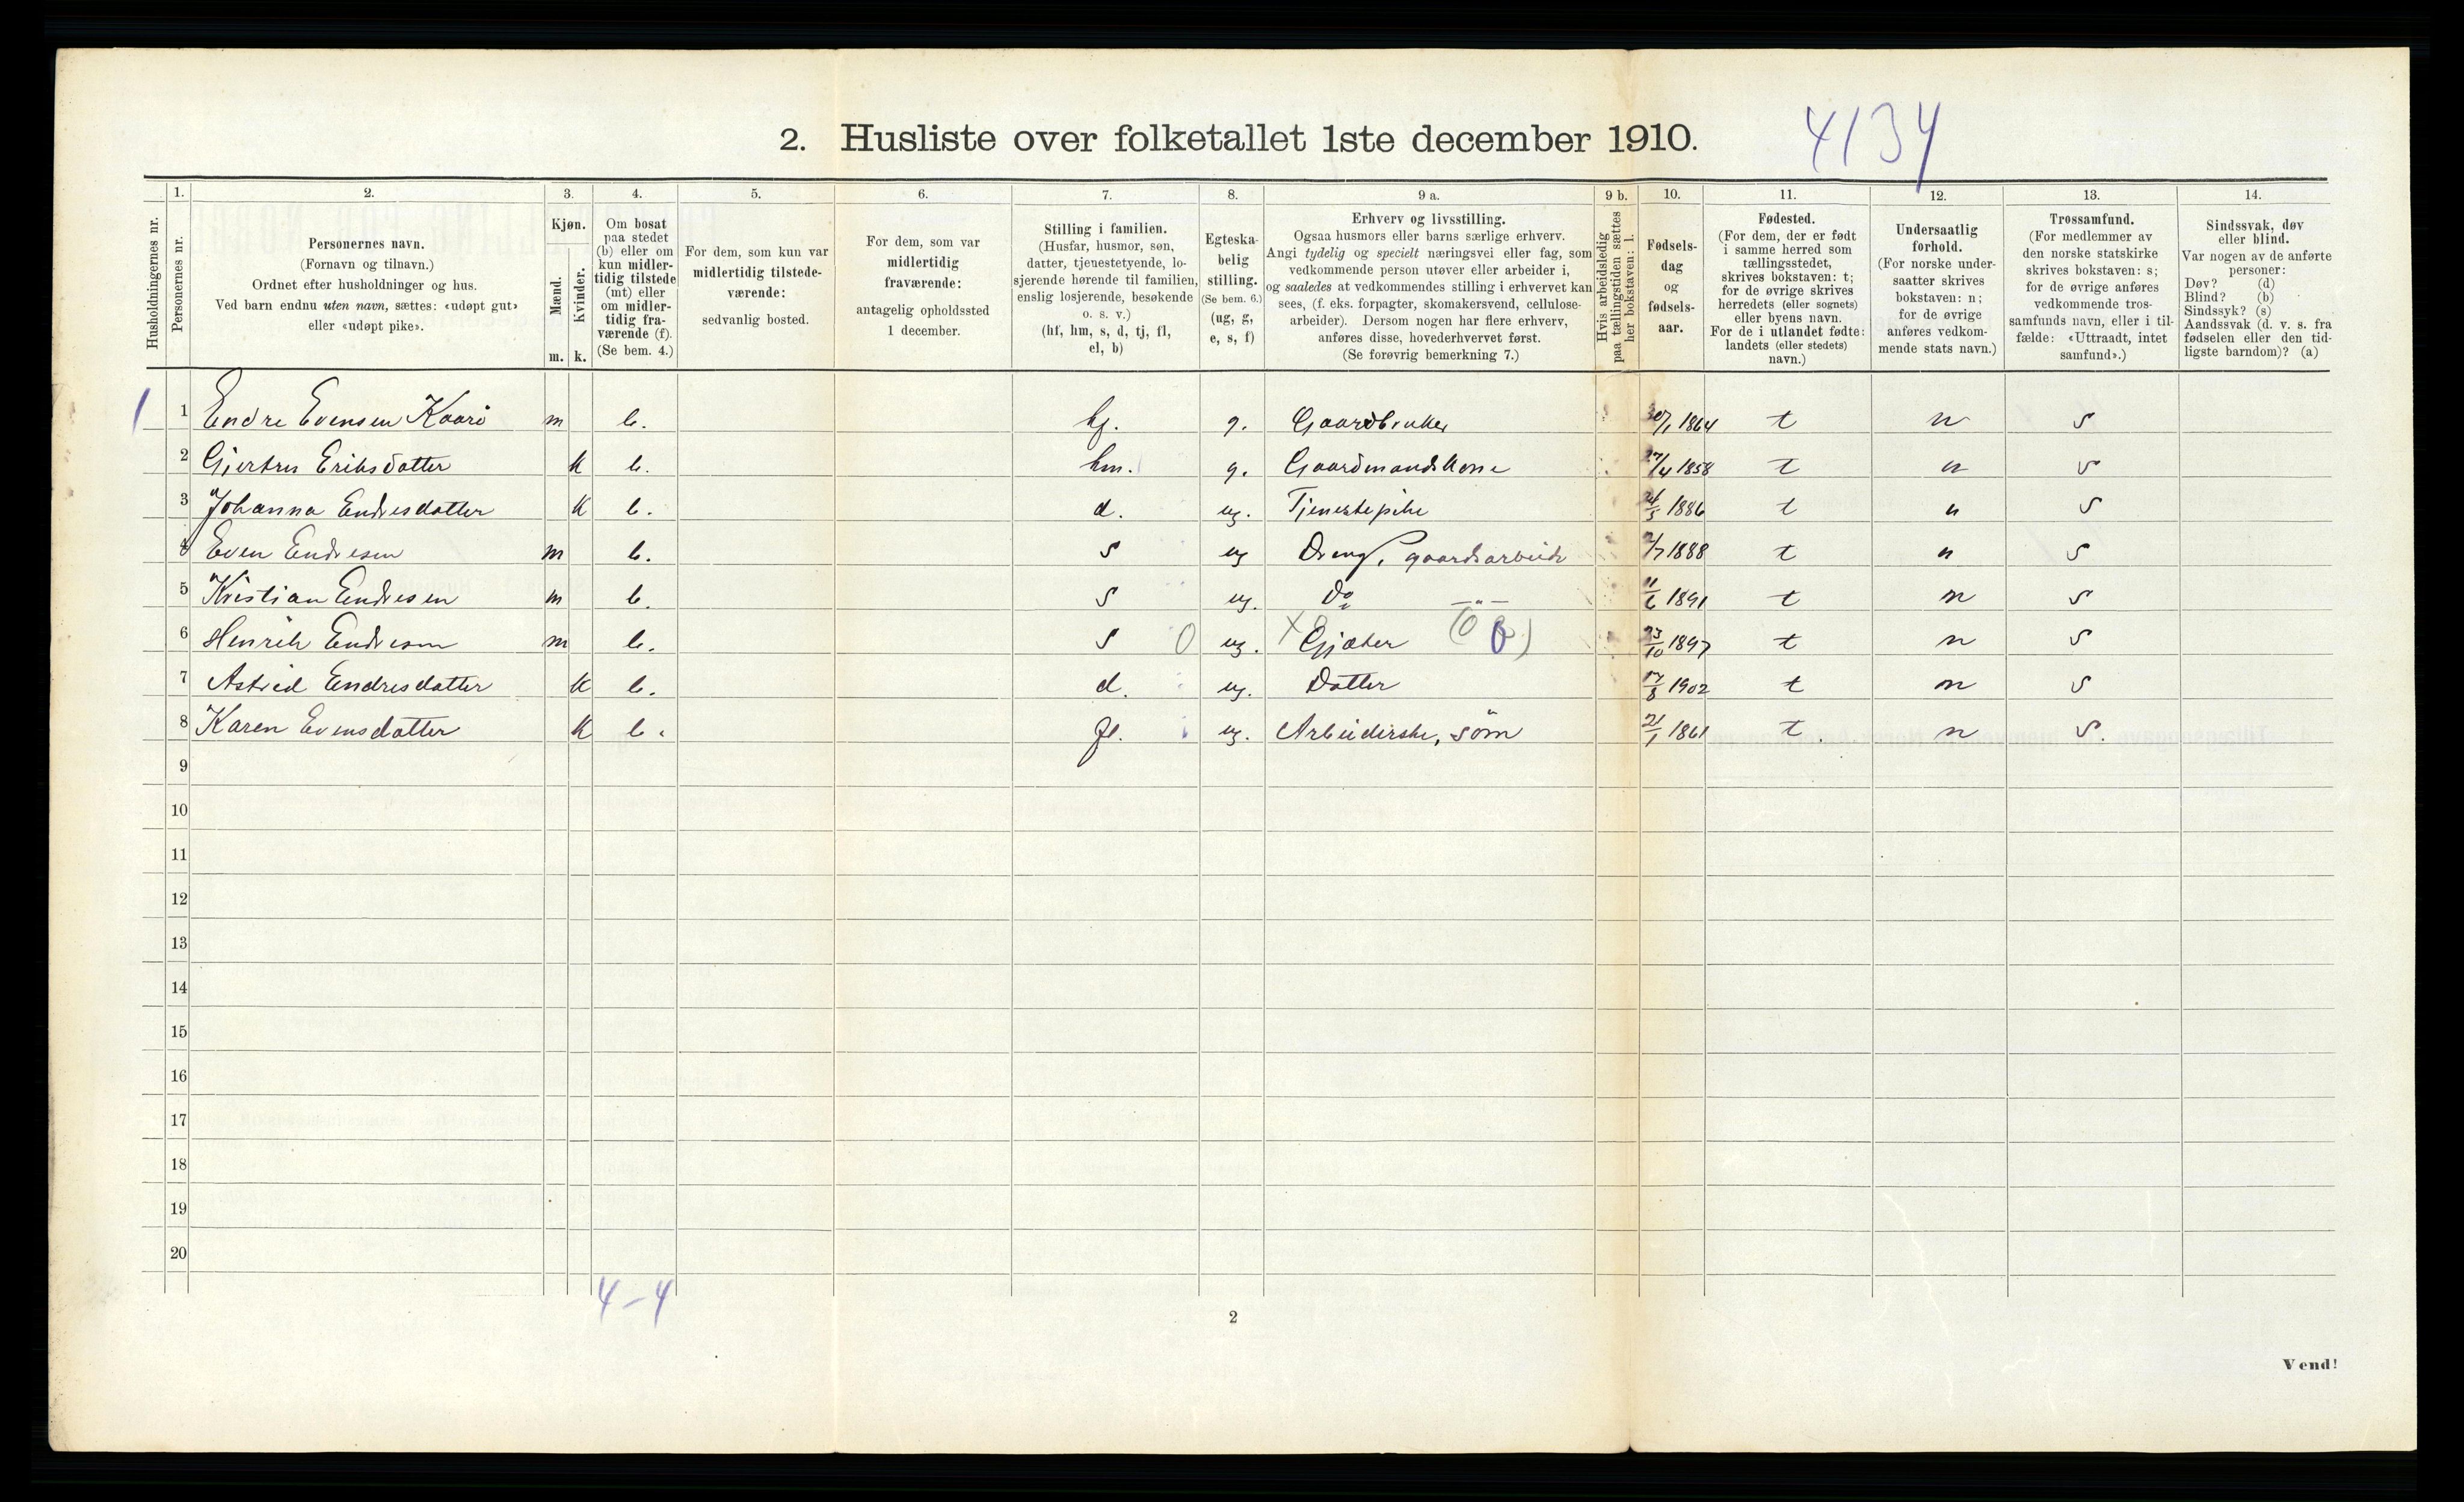 2. Husliste over folketallet 1ste december 1910. 4134
1. 2. 3. 4. 5. 6. 7. 8. 9 a. 9 b. 10. 11. 12. 13. 14.
Husholdningernes nr.
Personernes nr.
Personernes navn.
(Fornavn og tilnavn.)
Ordnet efter husholdninger og hus.
Ved barn endnu uten navn, sættes: «udøpt gut»
eller «udøpt pike».
Kjøn.
Mænd.
Kvinder.
m. k.
Om bosat
paa stedet
(b) eller om
kun midler-
tidig tilstede
(mt) eller
om midler-
tidig fra-
værende (f).
(Se bem. 4.)
For dem, som kun var
midlertidig tilstede-
værende:
sedvanlig bosted.
For dem, som var
midlertidig
fraværende:
antagelig opholdssted
1 december.
Stilling i familien.
(Husfar, husmor, søn,
datter, tjenestetyende, lo-
sjerende hørende til familien,
enslig losjerende, besøkende
o. s. v.)
(hf, hm, s, d, tj, fl,
el, b)
Egteska-
belig
stilling.
(Se bem. 6.)
(ug, g,
e, s, f)
Erhverv og livsstilling.
Ogsaa husmors eller barns særlige erhverv.
Angi tydelig og specielt næringsvei eller fag, som
vedkommende person utøver eller arbeider i,
og saaledes at vedkommendes stilling i erhvervet kan
sees, (f. eks. forpagter, skomakersvend, cellulose-
arbeider). Dersom nogen har flere erhverv,
anføres disse, hovederhvervet først.
(Se forøvrig bemerkning 7.)
Hvis arbeidsledig
paa tællingstiden sættes
her bokstaven: l.
Fødsels-
dag
og
fødsels-
aar.
Fødested.
(For dem, der er født
i samme herred som
tællingsstedet,
skrives bokstaven: t;
for de øvrige skrives
herredets (eller sognets)
eller byens navn.
For de i utlandet fødte:
landets (eller stedets)
navn.)
Undersaatlig
forhold.
(For norske under-
saatter skrives
bokstaven: n;
for de øvrige
anføres vedkom-
mende stats navn.)
Trossamfund.
(For medlemmer av
den norske statskirke
skrives bokstaven: s;
for de øvrige anføres
vedkommende tros-
samfunds navn, eller i til-
fælde: «Uttraadt, intet
samfund».)
Sindssvak, døv
eller blind.
Var nogen av de anførte
personer:
Døv? (d)
Blind? (b)
Sindssyk? (s)
Aandssvak (d. v. s. fra
fødselen eller den tid-
ligste barndom)? (a)
1 1 Endre Evensen Kaarö m b. hf. g. Gaardbruker 30/1 1864 t n s
2 Gjertru Eriksdatter k b. hm. g. Gaardmandskone 27/4 1858 t n s
3 Johanna Endresdatter k b. d. ug. Tjenestepike 21/5 1886 t n s
4 Even Endresen m b. s ug Dreng, gaardsarbeide 2/7 1888 t n s
5 Kristian Endresen m b. s ug. Do —"— 11/6 1891 t n s
6 Henrik Endresen m b. s 0 ug. X Gjæter 23/10 1897 t n s
7 Astrid Endresdatter k b. d. ug. Datter 17/8 1902 t n s
8 Karen Evensdatter k b. fl. ug. Arbeiderske, söm 21/1 1861 t. n s.
9
10
11
12
13
14
15
16
17
18
19
20
4–4
2
Vend!